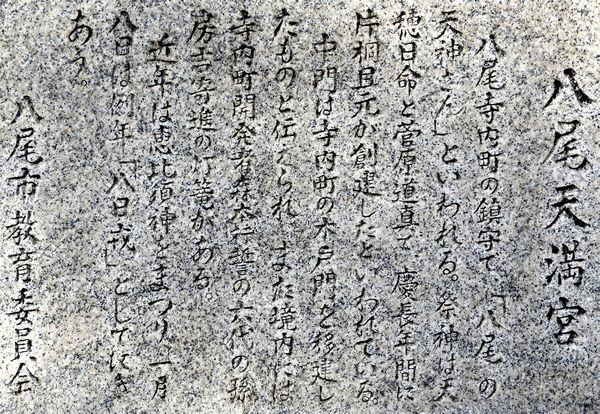 八尾天満宮
八尾寺内町の鎮守で、「八尾の
天神さん」といわれる。祭神は天
穂日命と菅原道真で 慶長年間に
片桐且元が創建したといわれている。
中門は寺内町の木戸門を移建し
たものと伝えられ、また境内には
寺内町開発者森本行誓の六代の孫
房士寄進の灯篭がある。
近年は恵比須神をまつり、一月
八日は例年「八日戎」としてにぎ
あう。
八尾市教育委員会